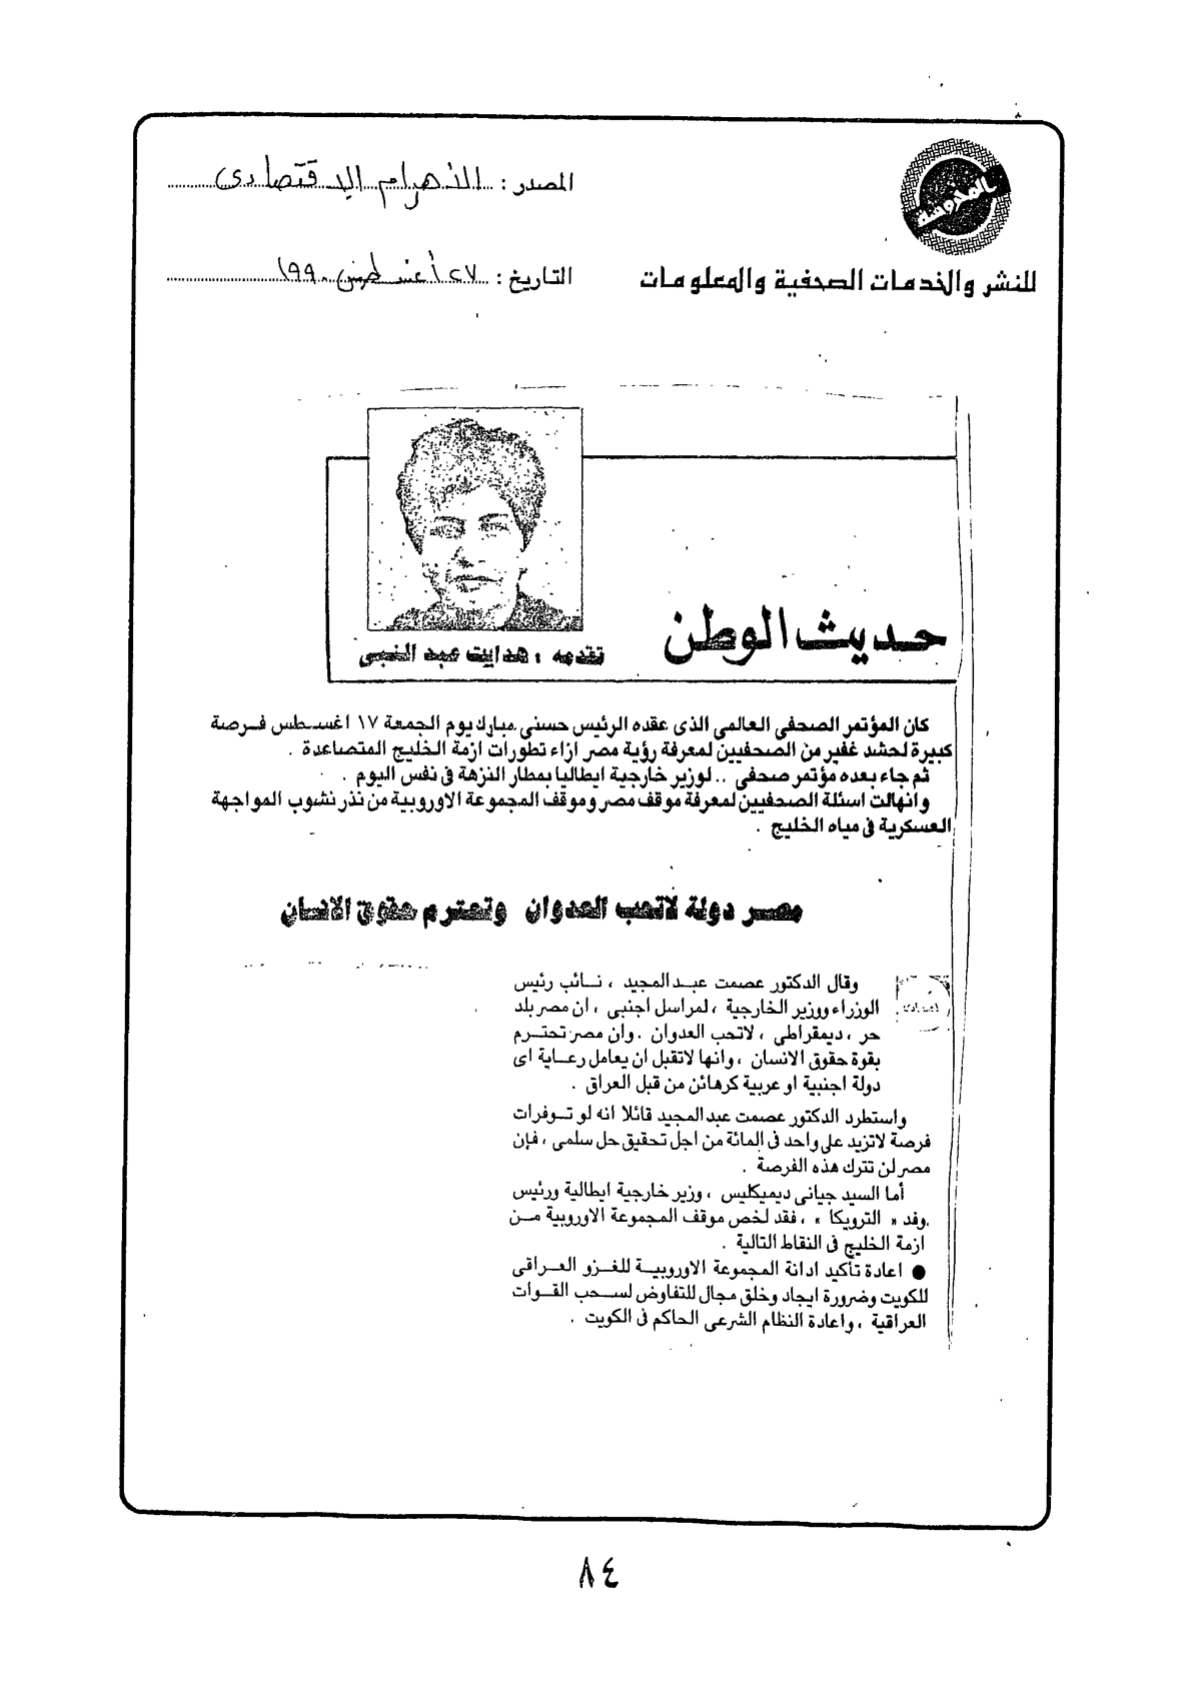 المصدر : الأهرام الاقتصادى
المحروسة
للنشر والخدمات الصحفية والمعلومات
التاريخ : ٢٧ أغسطس ١٩٩٠
حديث الوطن
تقدمه : هدايت عبد النبى
كان المؤتمر الصحفى العالمى الذى عقده الرئيس حسنى مبارك يوم الجمعة ١٧ اغسطس فرصة
كبيرة لحشد غفير من الصحفيين لمعرفة رؤية مصر ازاء تطورات ازمة الخليج المتصاعدة .
ثم جاء بعده مؤتمر صحفى .. لوزير خارجية ايطاليا بمطار النزهة فى نفس اليوم .
وانهالت اسئلة الصحفيين لمعرفة موقف مصر وموقف المجموعة الاوروبية من نذر نشوب المواجهة
العسكرية فى مياه الخليج .
مصر دولة لاتحب العدوان وتحترم حقوق الانسان
وقال الدكتور عصمت عبد المجيد ، نائب رئيس
الوزراء ووزير الخارجية ، لمراسل اجنبى ، ان مصر بلد
حر ، ديمقراطى ، لاتحب العدوان . وان مصر تحترم
بقوة حقوق الانسان ، وانها لاتقبل ان يعامل رعاية اى
دولة اجنبية او عربية كرهائن من قبل العراق .
واستطرد الدكتور عصمت عبد المجيد قائلا انه لو توفرات
فرصة لاتزيد على واحد فى المائة من اجل تحقيق حل سلمى ، فإن
مصر لن تترك هذه الفرصة .
أما السيد جيانى ديميكليس ، وزير خارجية ايطالية ورئيس
وفد « الترويكا » ، فقد لخص موقف المجموعة الاوروبية من
ازمة الخليج فى النقاط التالية .
● اعادة تأكيد ادانة المجموعة الاوروبية للغزو العراقى
للكويت وضرورة ايجاد وخلق مجال للتفاوض لسحب القوات
العراقية ، واعادة النظام الشرعى الحاكم فى الكويت .
٨٤